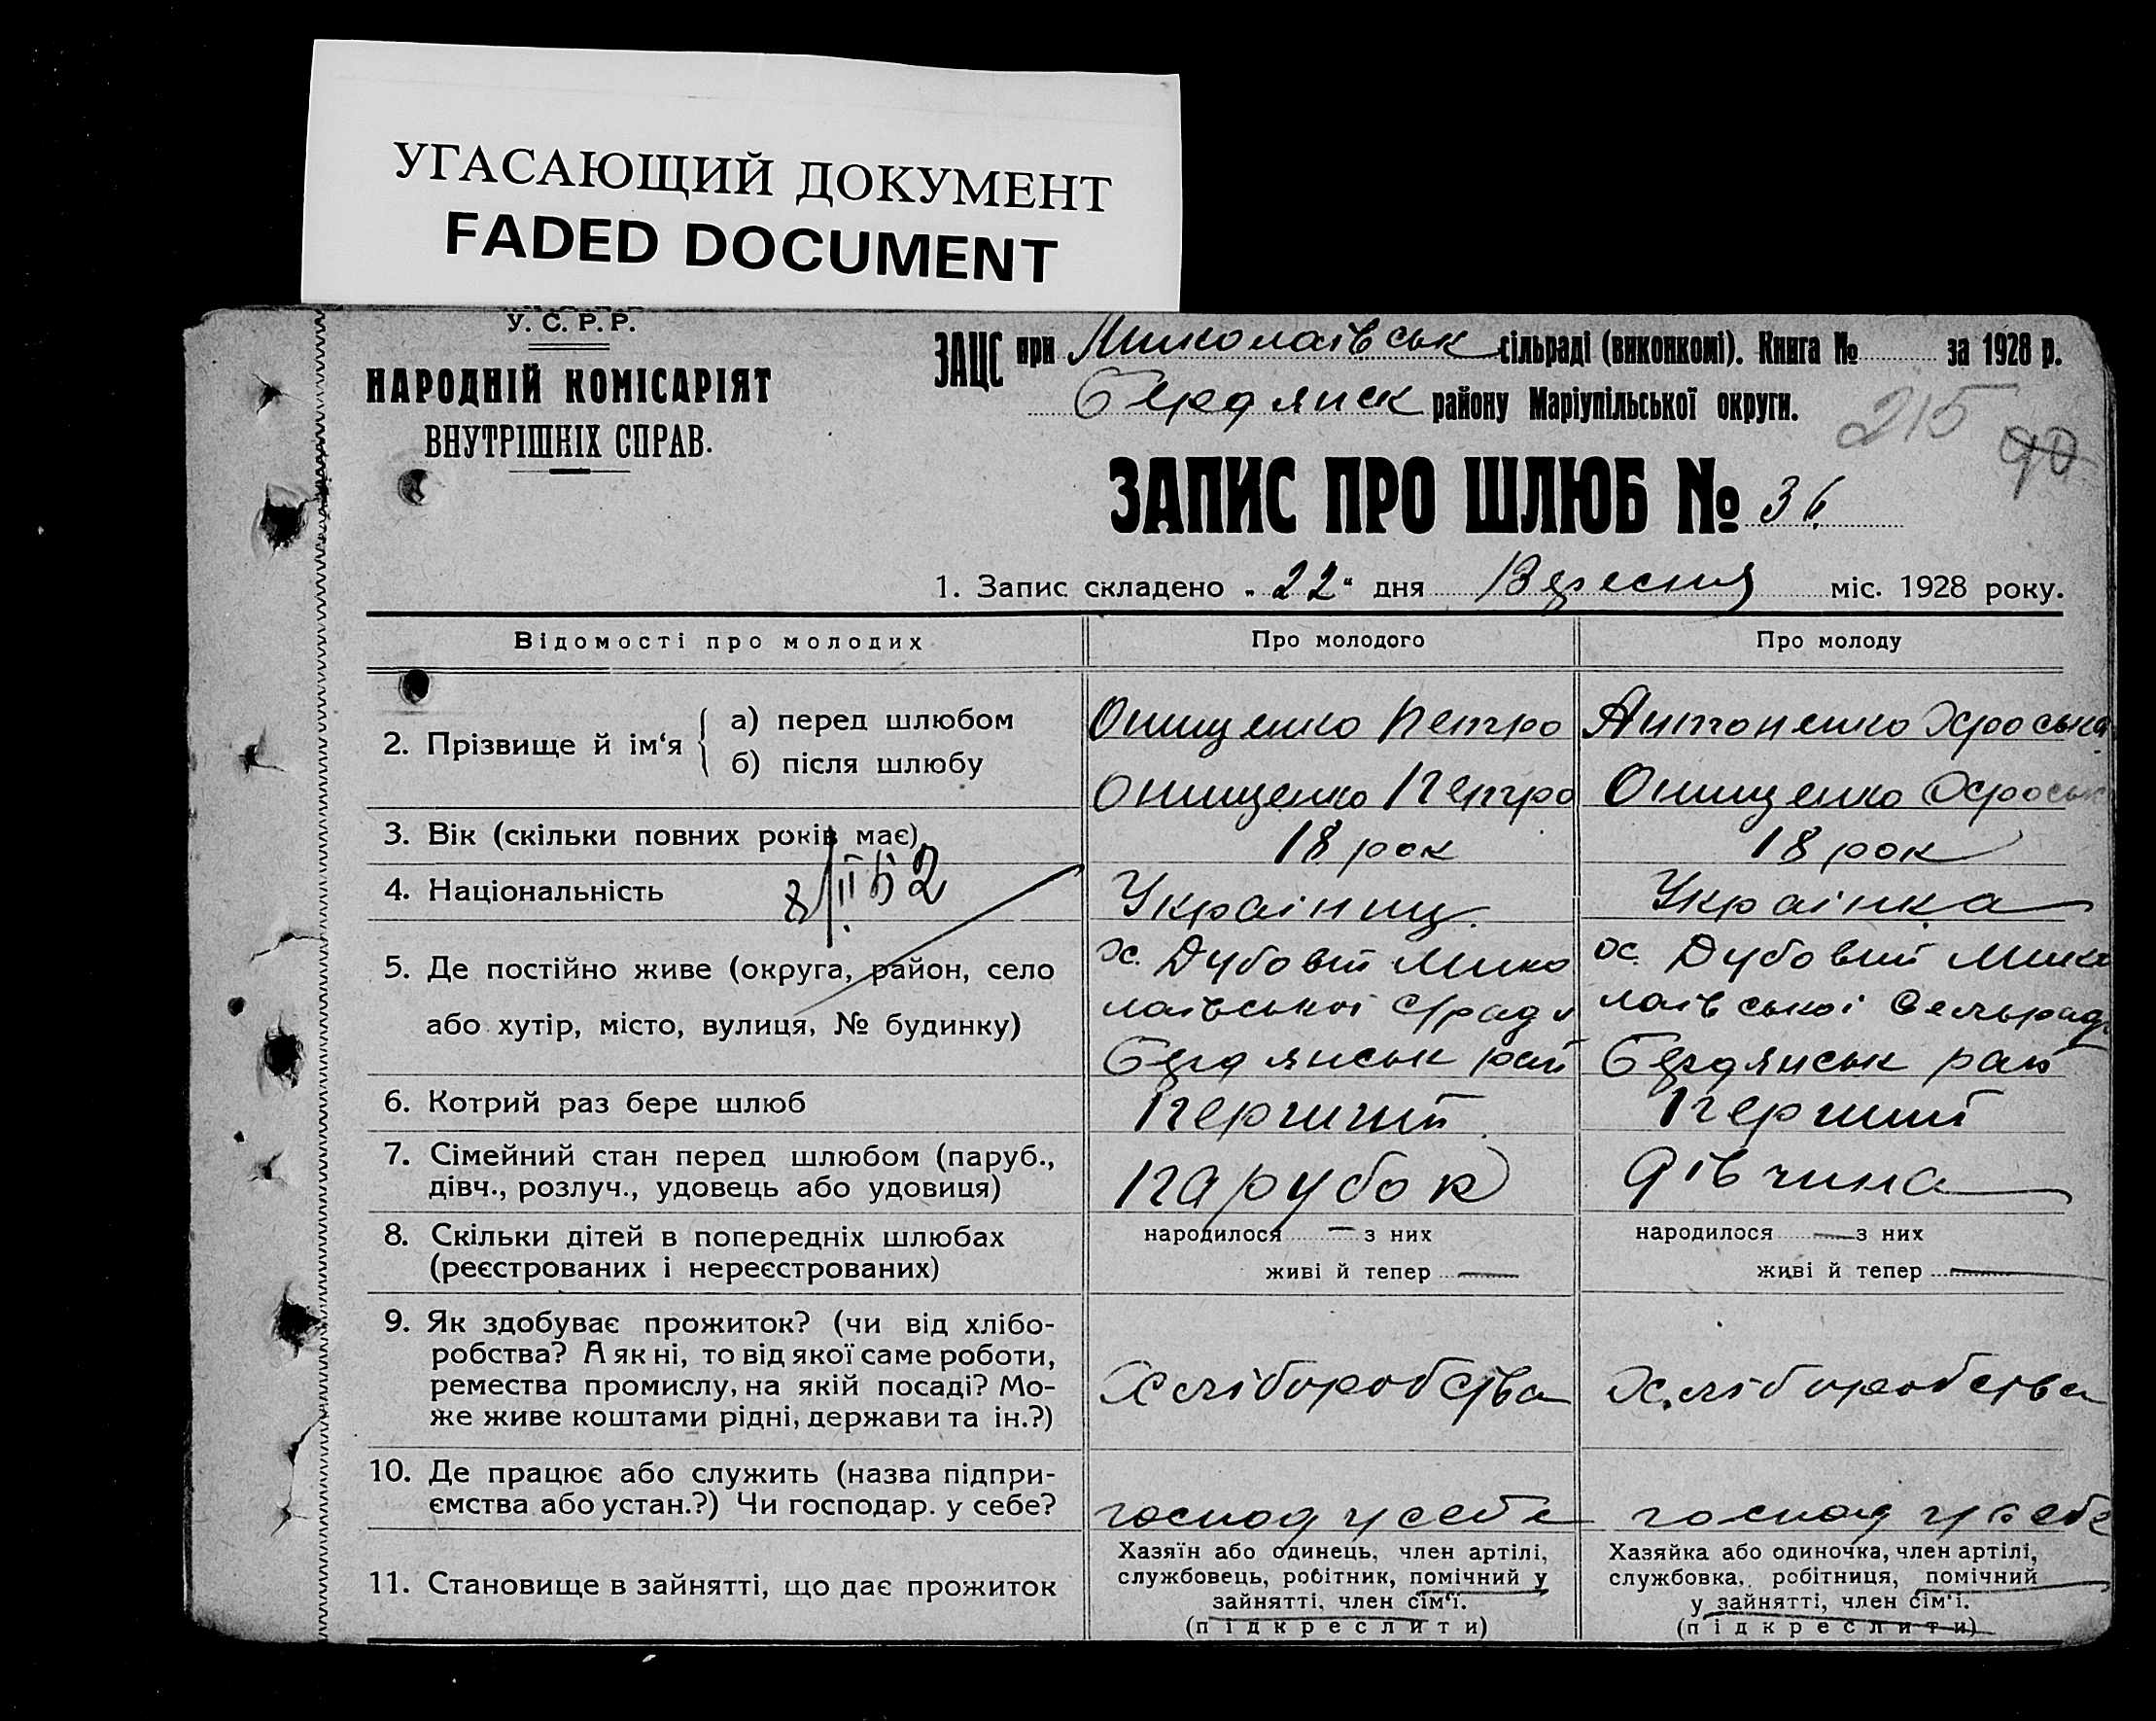 УГАСАЮЩИЙ ДОКУМЕНТ
FADED DOCUMENT
У. С. Р. Р.
НАРОДНІЙ КОМІСАРІЯТ
ВНУТРІШНІХ СПРАВ.
ЗАЦС при Миколаівськ сільраді (виконкомі). Книга № за 1928 р.
Бердянск району Маріупільської округи.
215
90
ЗАПИС ПРО ШЛЮБ № 36
1. Запис складено „22“ дня Вересня міс. 1928 року.
Відомості про молодих
Про молодого
Про молоду
2. Прізвище й ім‘я
а) перед шлюбом
Онищенко Петро
Антоненко Хроська
б) після шлюбу
Онищенко Петро
Онищенко Хроськ
3. Вік (скільки повних років має)
18 рок
18 рок
4. Національність
8/II 52
Украінец
Украінка
5. Де постійно живе (округа, район, село
або хутір, місто, вулиця, № будинку)
х. Дубовий Мико
лаівськоі с/ради
Бердянськ рай
х. Дубовий Мико
лаівськоі Сельради
Бердянськ рай
6. Котрий раз бере шлюб
Перший
Перший
7. Сімейний стан перед шлюбом (паруб.,
дівч., розлуч., удовець або удовиця)
парубок
дівчина
8. Скільки дітей в попередніх шлюбах
(реєстрованих і нереєстрованих)
народилося — з них
живі й тепер —
народилося — з них
живі й тепер —
9. Як здобуває прожиток? (чи від хлібо-
робства? А як ні, то від якої саме роботи,
ремества промислу, на якій посаді? Мо-
же живе коштами рідні, держави та ін.?)
Хліборобства
Хліборобства
10. Де працює або служить (назва підпри-
ємства або устан.?) Чи господар. у себе?
господ у себе
господ у себе
11. Становище в зайнятті, що дає прожиток
Хазяїн або одинець, член артілі,
службовець, робітник, помічний у
зайнятті, член сім‘ї.
(підкреслити)
Хазяйка або одиночка, член артілі,
службовка, робітниця, помічний
у зайнятті, член сім‘ї.
(підкреслити)